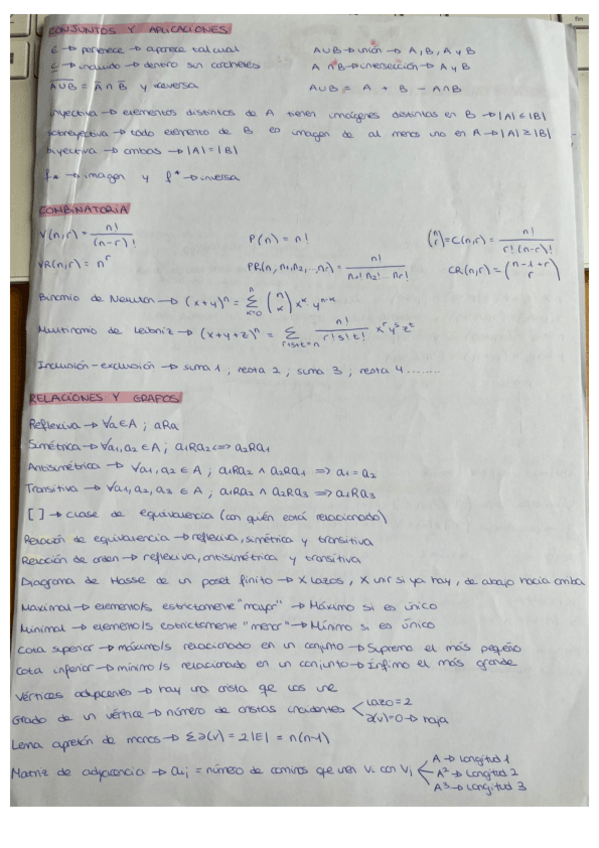 CONJUNTOS Y APLICACIONES
∈ → pertenece → aparece tal cual
A∪B → unión → A, B, A y B
⊆ → incluido → dentro sin corchetes
A ∩ B → intersección → A y B
A∪B = A ∩ B y viceversa
A∪B = A + B - A∩B
inyectiva → elementos distintos de A tienen imágenes distintas en B → |A| ≤ |B|
sobreyectiva → todo elemento de B es imagen de al menos uno en A → |A| ≥ |B|
biyectiva → ambas → |A| = |B|
f* → imagen y f* → inversa
COMBINATORIA
V(n,r) = n! / (n-r)!
P(n) = n!
(n r) = C(n,r) = n! / r!(n-r)!
VR(n,r) = n^r
PR(n, n1, n2, ..., nr) = n! / n1! n2! ... nr!
CR(n,r) = (n-1+r r)
Binomio de Newton → (x+y)^n = Σ (n k) x^k y^n-k
Multinomio de Leibniz → (x+y+z)^n = Σ r+s+t=n n! / r! s! t! x^r y^s z^t
Inclusión-exclusión → suma 1 ; resta 2 ; suma 3 ; resta 4 ........
RELACIONES Y GRAFOS
Reflexiva → ∀a ∈ A ; aRa
Simétrica → ∀a1, a2 ∈ A ; a1Ra2 <=> a2Ra1
Antisimétrica → ∀a1, a2 ∈ A ; a1Ra2 ∧ a2Ra1 => a1 = a2
Transitiva → ∀a1, a2, a3 ∈ A ; a1Ra2 ∧ a2Ra3 => a1Ra3
[ ] → clase de equivalencia (con quién está relacionado)
Relación de equivalencia → reflexiva, simétrica y transitiva
Relación de orden → reflexiva, antisimétrica y transitiva
Diagrama de Hasse de un poset finito → X lazos, X unir si ya hay, de abajo hacia arriba
Maximal → elemento/s estrictamente "mayor" → Máximo si es único
Minimal → elemento/s estrictamente "menor" → Mínimo si es único
Cota superior → máximo/s relacionado en un conjunto → Supremo el más pequeño
Cota inferior → mínimo/s relacionado en un conjunto → Ínfimo el más grande
Vértices adyacentes → hay una arista que los une
Grado de un vértice → número de aristas incidentes
lazo = 2
∂(v) = 0 → hoja
Lema apretón de manos → Σ∂(v) = 2|E| = n(n-1)
Matriz de adyacencia → aij = número de caminos que unen Vi con Vj
A → longitud 1
A² → longitud 2
A³ → longitud 3